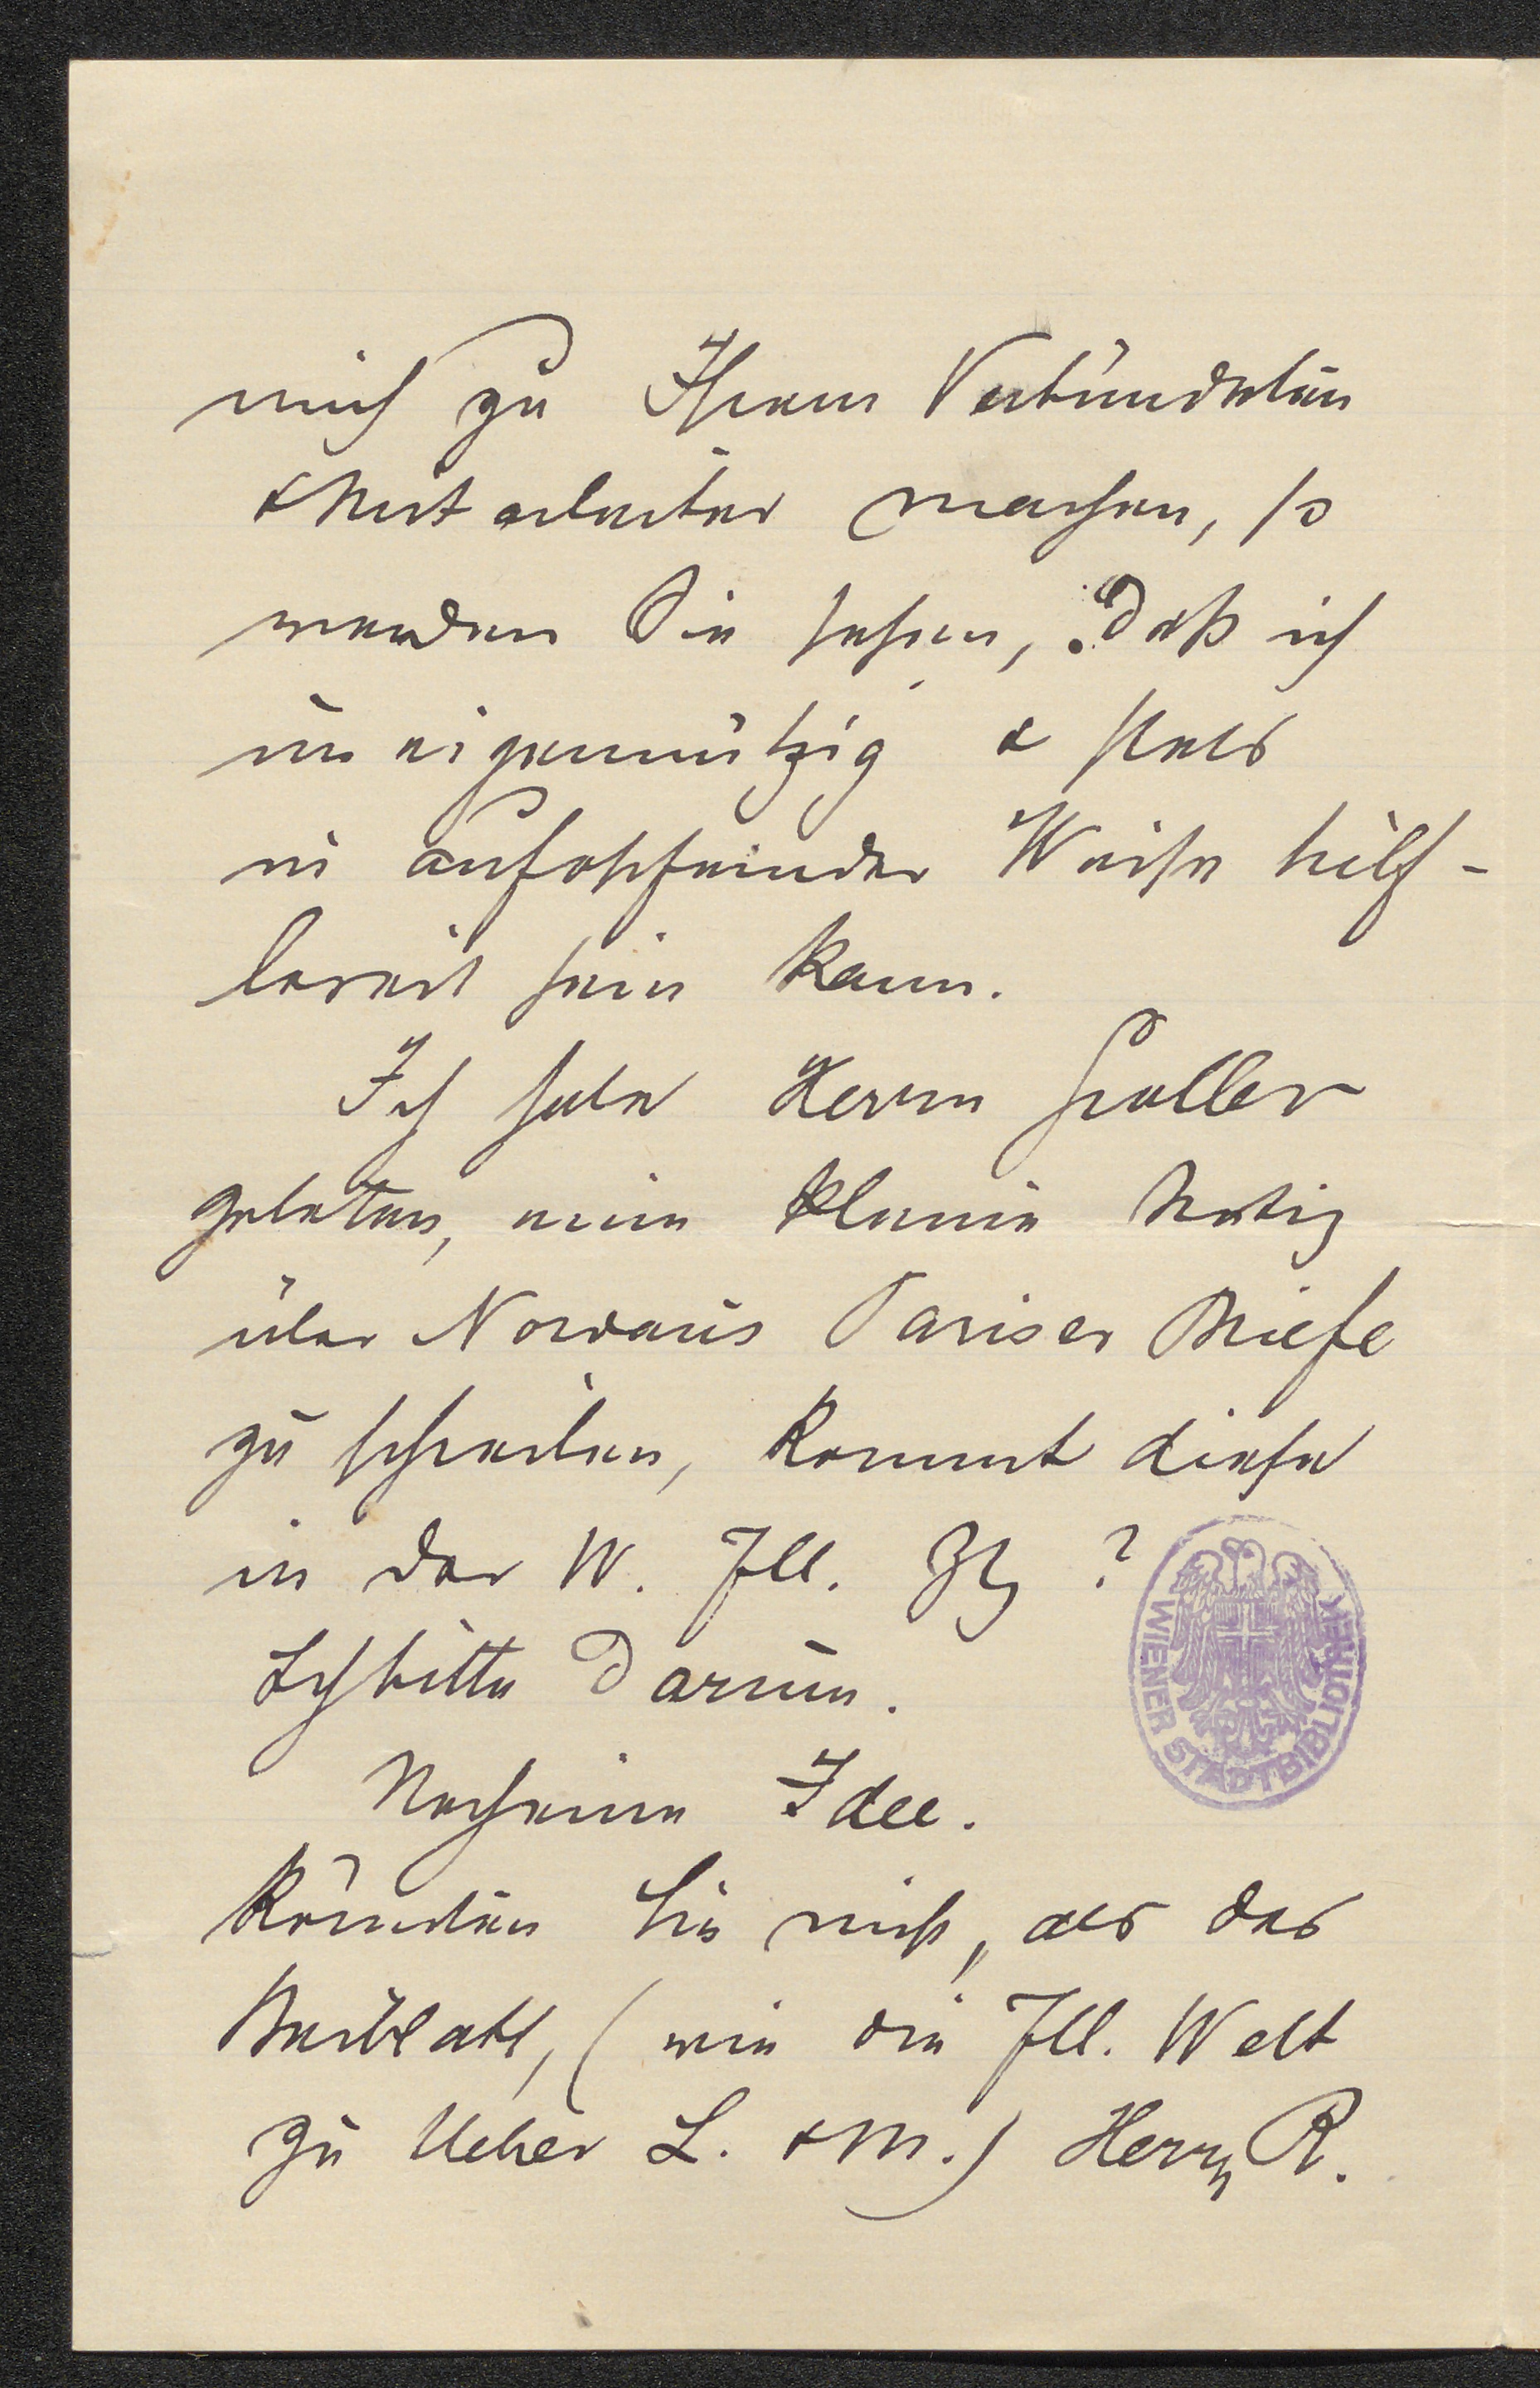 mich zu Ihrem Verbündeten
& Mitarbeiter machen, so
werden Sie sehen, daß ich
uneigennützig & stets
in aufopfernder Weise hilf-
bereit sein kann.
Ich habe Herrn Groller
gebeten, eine kleine Notiz
über Nordaus Pariser Briefe
zu schreiben, kommt diese
in der W. Ill. Ztg ?
Ich bitte darum.
Noch eine Idee.
Könnten Sie nicht, als das
Beiblatt, (wie die Ill. Welt
zu Ueber L. & M.) Herrn R.
WIENER STADTBIBLIOTHEK